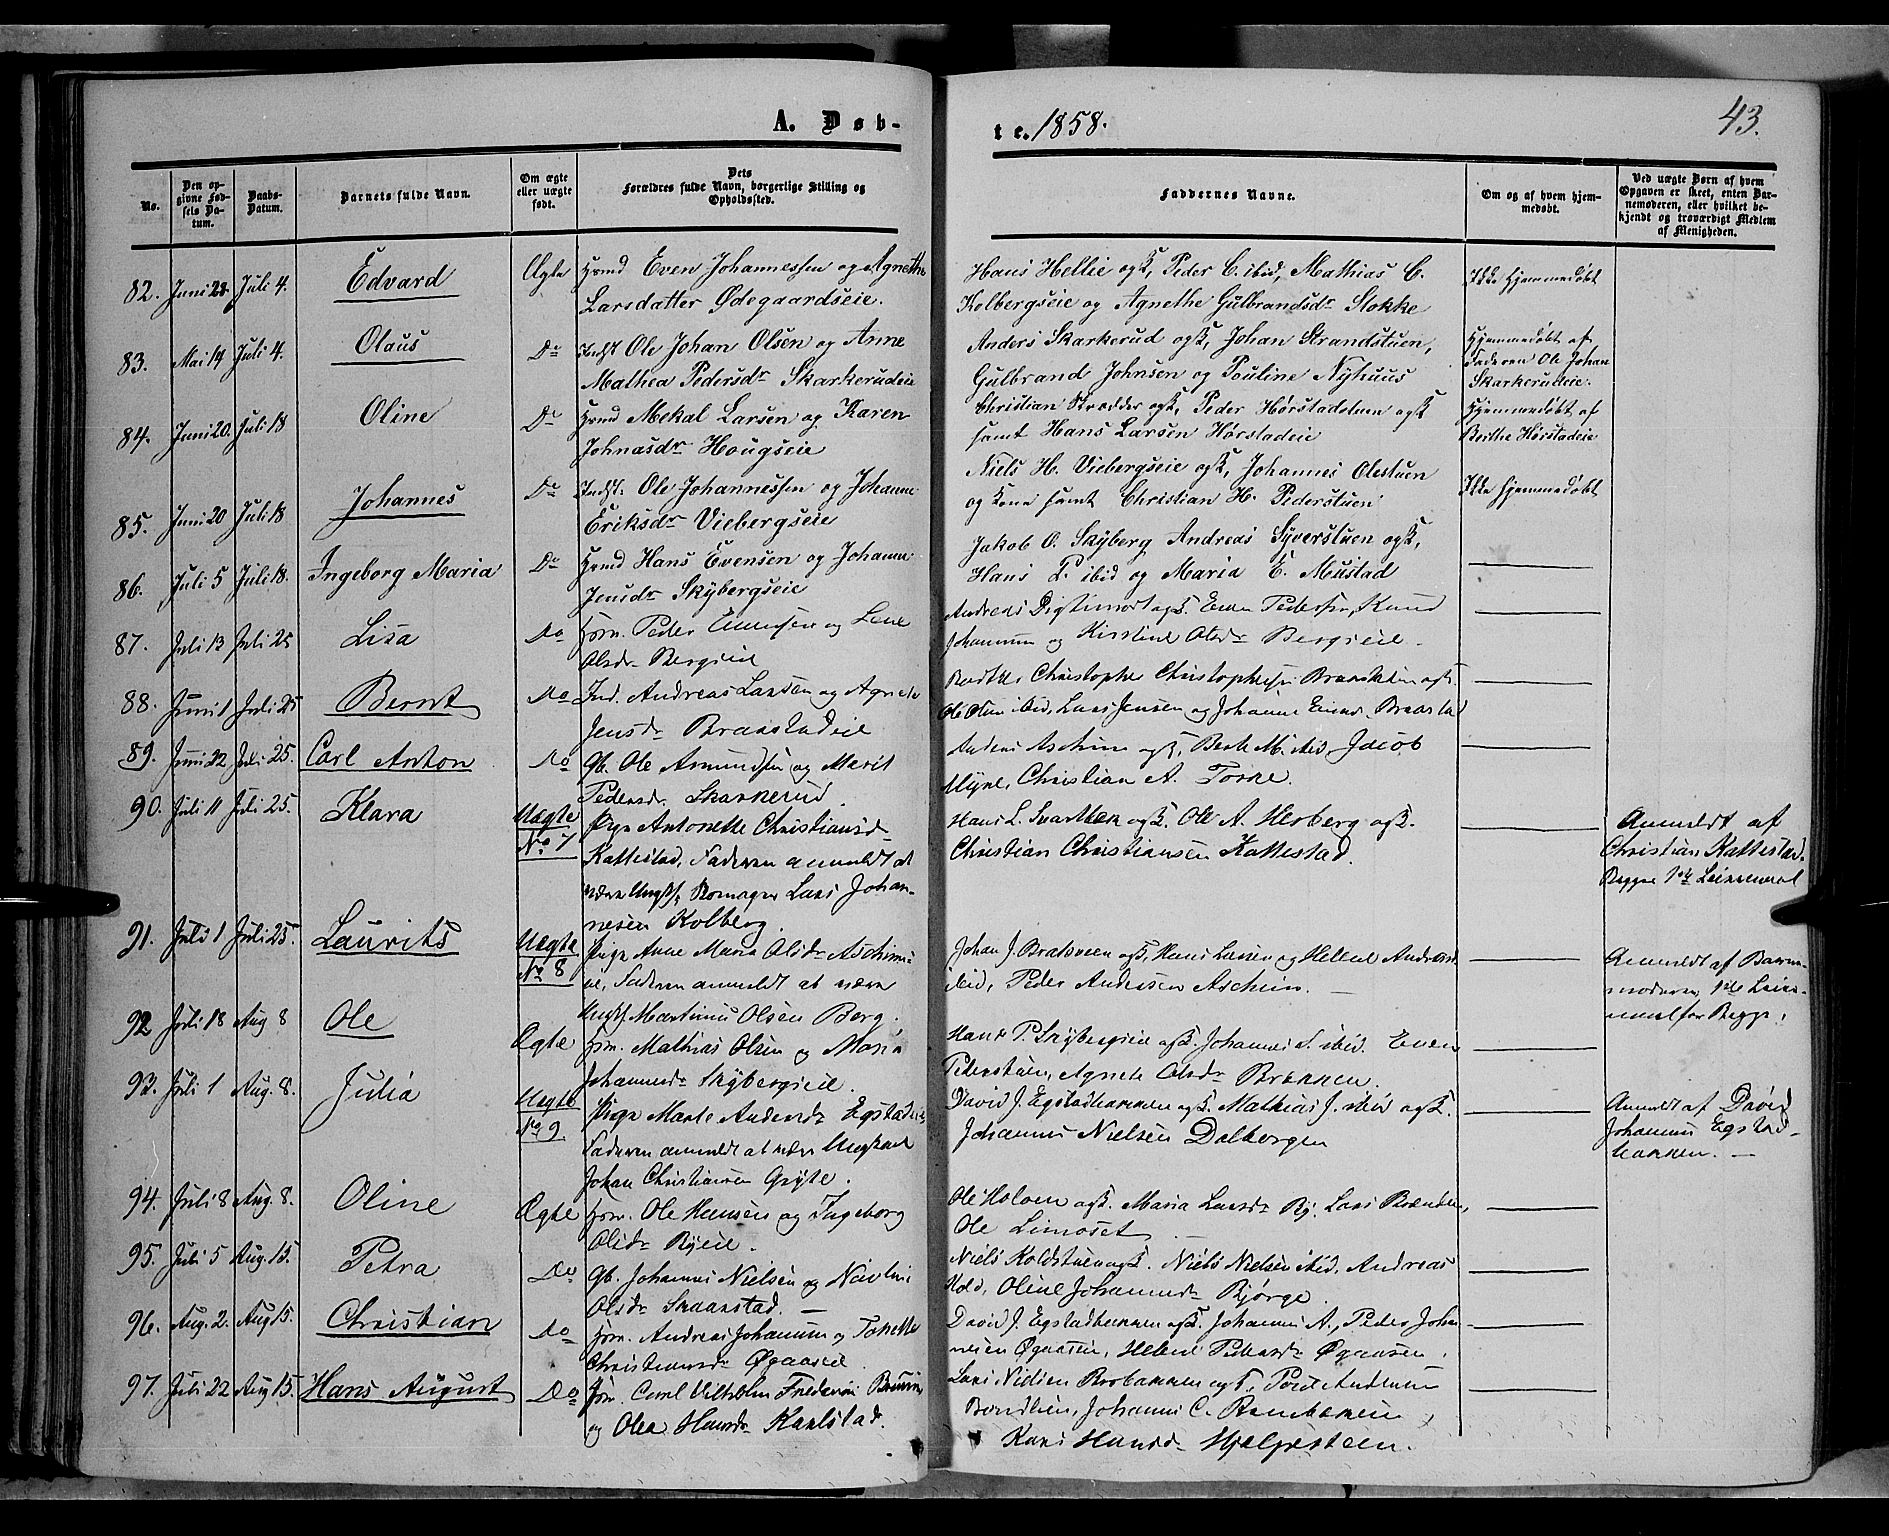 A. Døb-
te. 1858.
43.
No.
Den op-
givne Fød-
sels Da-
tum.
Daabs-
Datum.
Barnets fulde Navn.
Om ægte
eller uægte
født.
Dets
Forældres fulde Navn, borgerlige Stilling og
Opholdssted.
Faddernes Navne.
Om og af hvem hjem-
medøbt.
Ved uægte Børn af hvem
Opgaven er skeet, enten Bar-
nemoderen, eller hvilket be-
kjendt og troværdigt Medlem
af Menigheden.
82. Juni Juli 4. Edvard Ægte Huusmd Even Johannessen og Agnethe
Larsdatter Ødegaardseie.
Hans Hellie og K, Peder C. ibid, Mathias C.
Kolbergseie og Agnethe Gulbrandsdr Stokke
Ikke hjemmedøbt
83. Mai 14 Juli 4. Olaus Do Indst Ole Johan Olsen og Anne
Mathea Pedersdr Skarkerudeie
Anders Skarkerud og K, Johan Strandstuen,
Gulbrand Johnsen og Pouline Nyhuus
Hjemmedøbt af
Faderen Ole Johan
Skarkerudeie.
84. Juni 20. Juli 18 Oline Do Mekal Larsen og Karen
Johnasdr Hougseie
Christian Skrædder og K, Peder Hørstadstuen og K
samt Hans Larsen Hørstadeie
Hjemmedøbt af
Berthe Hørstadeie
85. Juni 20 Juli 18 Johannes Do Indst. Ole Johannessen og Johanne
Eriksdr Viebergseie
Niels H. Viebergseie og K, Johannes Olestuen
og Kone samt Christian H. Pederstuen
Ikke hjemmedøbt
86. Juli 5 Juli 18. Ingeborg Maria Do Hans Evensen og Johanne
Jensdr Skybergseie
Jakob O. Skyberg Andreas Syverstuen og K,
Hans P. ibid og Maria E. Mustad
87. Juli 13 Juli 25 Lisa Do Peder Evensen og Lene
Olsdr Bergseie
Andreas og K. Even Pedersen, Knud
Johannesen og Kirstine Olsdr Bergseie.
88. Juni 1 Juli 25 Bernt Do Ind. Andreas Larsen og Agnete
Jensdr Braastadeie
Christopher Christophersen og K.
Ole Olsen ibid, Lars Jensen og Johanne Braastad
89. Juni 22 Juli 25. Carl Anton Do Gb. Ole Amundsen og Marit
Pedersdr Skarkerud.
Anders Aschim og K, Berte M. ibid, Jacob
Myre, Christian A. Torke.
90. Juli 11 Juli 25. Klara Uægte
No 7
Pige Antonette Christiansdr
Kattestad, Faderen anmeldt at
være Ungk. Lars Johan-
nesen Kolberg.
Hans L. og K. Ole A. Hesberg og K.
Christian Christiansen Kattestad.
Anmeldt af
Christian Kattestad.
Begges 1ste Leiermaal
91. Juli 1 Juli 25. Laurits Uægte
No 8
Pige Anne Maria Olsdr Aschim-
eie, Faderen anmeldt at være
Ungk. Martinus Olsen Berg.
Johan J. og K, Hans Larsen og Helene Andersd
ibid, Peder Andersen Aschim. —
Anmeldt af Barne-
moderen, 1ste Leier-
maal for Begge.
92 Juli 18 Aug 8 Ole Ægte Mathias Olsen og Maria
Johannesdr Skybergseie.
Hans P. Skybergseie og K. Johannes S. ibid. Even
Pederstuen, Agnete Olsdr Brækken.
93. Juli 1 Aug. 8. Julia Uægte
No 9
Pige Marte Andersdr Egstadeie,
Faderen anmeldt at være Ungkarl
Johan Christiansen Gryte.
David J. Egstadbakken og K. Mathias J. ibid og K.
Johannes Nielsen Dalborgen
Anmeldt af David
Johannes Egstad-
bakken. —
94. Juli 8 Aug. 8. Oline Ægte Ole Hansen og Ingeborg
Olsdr Ryeie.
Ole Holom og K. Maria Larsdr Ry. Lars Brænden,
Ole Limoset
95. Juli 5 Aug. 15. Petra Do Gb. Johannes Nielsen og
Olsdr Skaarstad. —
Niels Koldstuen og K. Niels Nielsen ibid. Andreas
Kold, Oline Johannesdr Bjørge.
96. Aug. 2. Aug 15. Christian Do Andreas Johannesen og Tonette
Christiansdr Øgaaseie
David J. Egstadbakken og K. Johannes A., Peder Johan-
nesen Øgaasen, Helene Pedersdr Øgaasen.
97. Juli 22 Aug 15. Hans August Do Carl Vilhelm Frederik
og Olea Hansdr Karlstad.
Lars Nielsen og K, Poul Andersen
Bondlien, Johannes C.
Kari Hansdr Hjelpesteen.